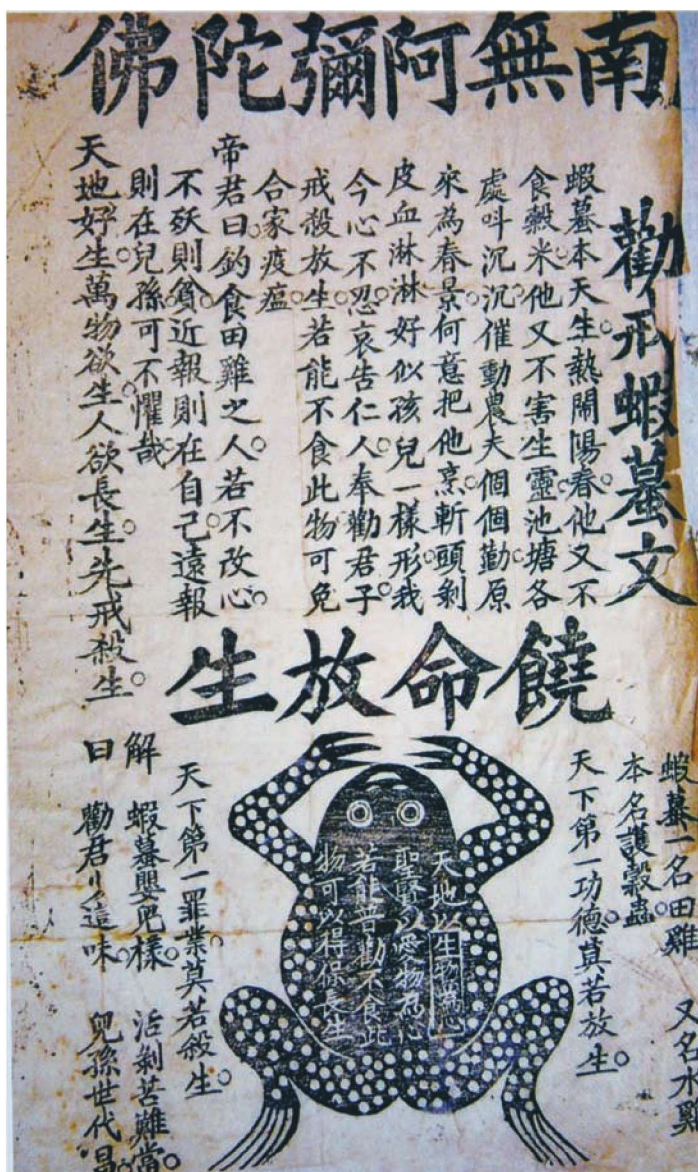 南無阿彌陀佛
勸戒蝦蟇文
蝦蟇本天生。熱鬧陽春。他又不
食穀米。他又不害生靈。池塘各
處叫沉沉。催動農夫個個勤。原
來為春景。何意把他烹。斬頭剝
皮血淋淋。好似孩兒一樣形。我
今心不忍。哀告仁人。奉勸君子
戒殺放生。若能不食此物。可免
合家疫瘟。
帝君曰。釣食田雞之人。若不改心。
不殀則貧。近報則在自己。遠報
則在兒孫。可不懼哉。
天地好生。萬物欲生。人欲長生。先戒殺生。
饒命放生
蝦蟇一名田雞 又名水雞
本名護穀蟲。
天下第一功德。莫若放生。
天地以生物為心
聖賢以愛物為心
若能普勸不食此
物可以得保長生
天下第一罪業。莫若殺生。
解曰
蝦蟇嬰兒樣。活剝苦難當。
勸君少這味。兒孫世代昌。